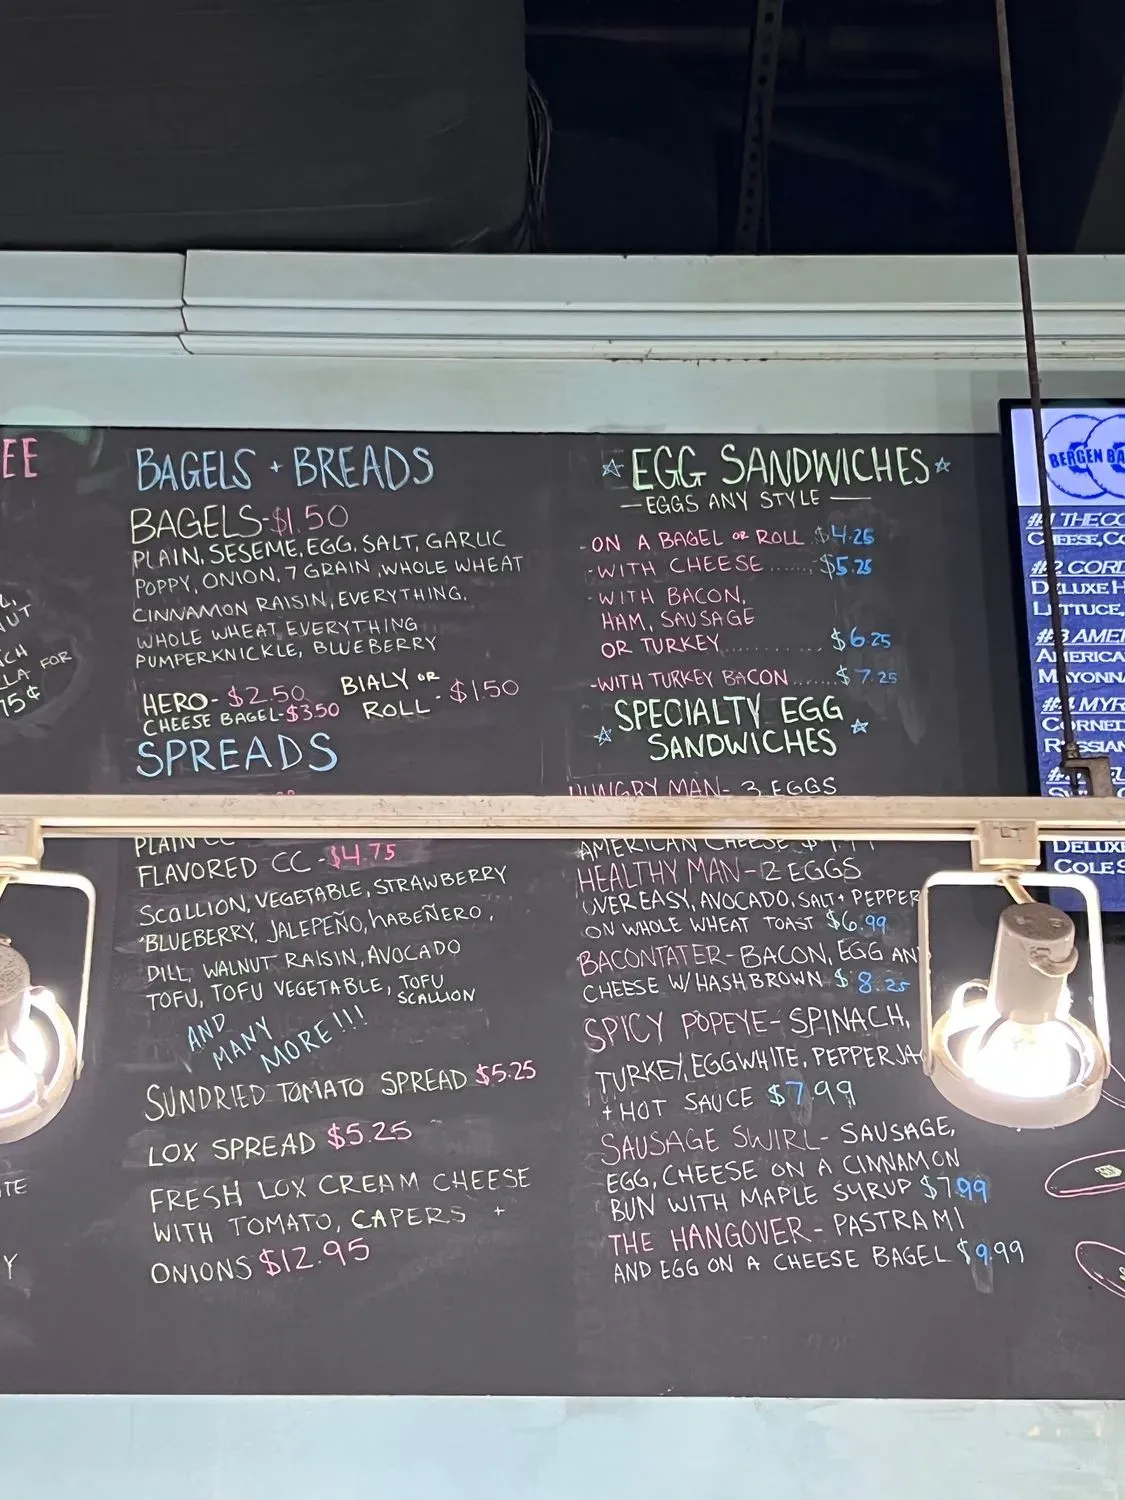 EE
BAGELS + BREADS
BAGELS-$1.50
PLAIN, SESEME, EGG, SALT, GARLIC
POPPY, ONION, 7 GRAIN, WHOLE WHEAT
CINNAMON RAISIN, EVERYTHING,
WHOLE WHEAT EVERYTHING
PUMPERKNICKLE, BLUEBERRY
HERO- $2.50
CHEESE BAGEL-$3.50
BIALY OR
ROLL - $1.50
SPREADS
PLAIN CC
FLAVORED CC -$4.75
SCALLION, VEGETABLE, STRAWBERRY
BLUEBERRY, JALEPEÑO, HABEÑERO,
DILL, WALNUT RAISIN, AVOCADO
TOFU, TOFU VEGETABLE, TOFU
SCALLION
AND
MANY
MORE!!!
SUNDRIED TOMATO SPREAD $5.25
LOX SPREAD $5.25
FRESH LOX CREAM CHEESE
WITH TOMATO, CAPERS +
ONIONS $12.95
EGG SANDWICHES
— EGGS ANY STYLE —
-ON A BAGEL OR ROLL $4.25
-WITH CHEESE ....... $5.25
-WITH BACON,
HAM, SAUSAGE
OR TURKEY............ $6.25
-WITH TURKEY BACON...... $7.25
SPECIALTY EGG
SANDWICHES
HUNGRY MAN- 3 EGGS
AMERICAN CHEESE
HEALTHY MAN- 2 EGGS
OVER EASY, AVOCADO, SALT + PEPPER
ON WHOLE WHEAT TOAST $6.99
BACONTATER- BACON, EGG AN
CHEESE W/ HASH BROWN $8.25
SPICY POPEYE- SPINACH,
TURKEY, EGGWHITE, PEPPER JA
+ HOT SAUCE $7.99
SAUSAGE SWIRL- SAUSAGE,
EGG, CHEESE ON A CINNAMON
BUN WITH MAPLE SYRUP $7.99
THE HANGOVER- PASTRAMI
AND EGG ON A CHEESE BAGEL $9.99
NUT
CH
LLA FOR
75¢
TE
Y
BERGEN BA
#1 THE CO
CHEESE, CO
#2 CORD
DELUXE H
LETTUCE,
#3 AMER
AMERICA
MAYONNA
#4 MYR
CORNED
RUSSIAN
DELUXE
COLE S